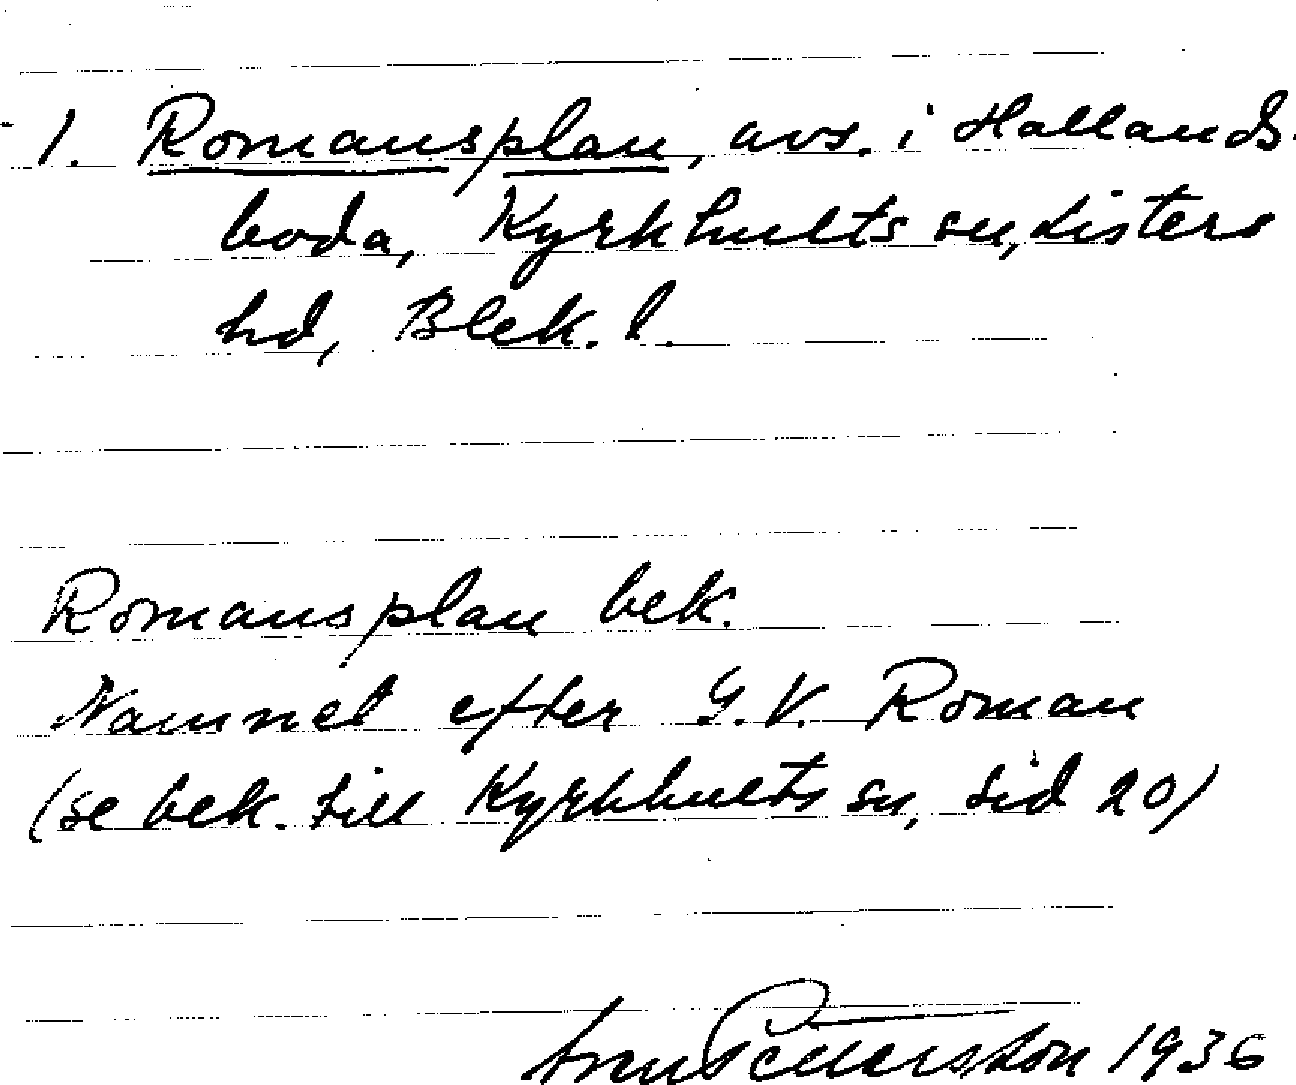 1. Romansplan, avs. i Hallands-
boda, Kyrkhults sn, Listers
hd, Blek. l.
Romansplan bek.
Namnet efter G.V. Roman
(se bek. till Kyrkhults sn, sid 20)
Pettersson 1936